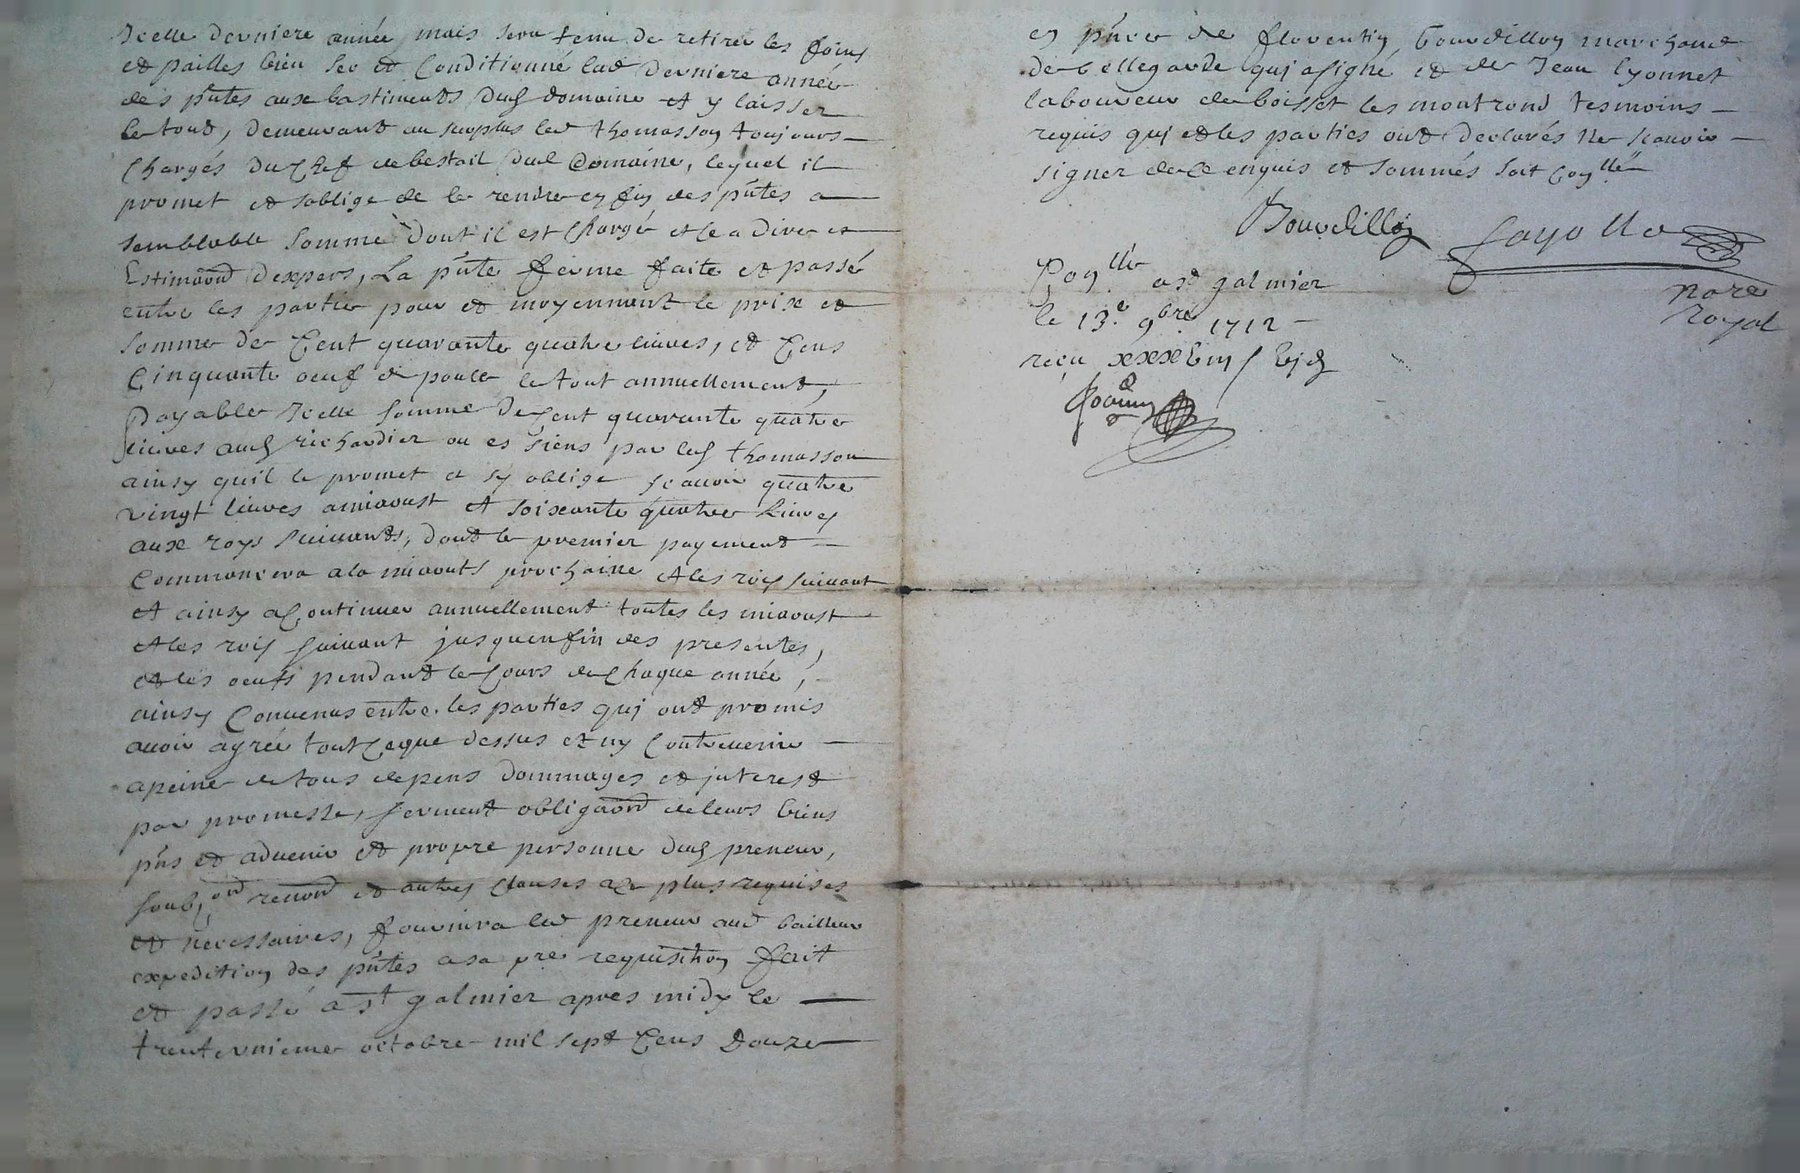 Jcelle derniere année, mais sera tenu de retirer les foins
et pailles bien sec et Conditionné lad derniere année
des pntes aux bastiments dud domaine et y laisser
le tout, demeurant au surplus led thomasson toujours
Chargés du Chef de bestail dud Domaine, lequel il
promet et soblige de le rendre en fin des pntes a
semblable somme dont il est Chargé et le a dire et
Estimaond dexpers, La pnte fferme faite et passé
entre les parties pour et moyennant le prix et
somme de Cent quarante quatre liures, et Cens
Cinquante oeuf de poule le tout annuellement,
payable Jcelle somme de Cent quarante quatre
liures aud richardier ou es siens par led thomasson
ainsy quil le promet et sy oblige scauoir quatre
vingt liures amiaoust et soixante quatre liures
aux roys suiuants, dont le premier payement
Commancera a la miaouts prochaine et les rois suiuant
et ainsy a Continuer annuellement toutes les miaoust
et les rois suiuant jusquen fin des presentes,
et les oeufs pendant le Cours de Chaque année,
ainsy Conuenus entre les parties qui ont promis
auoir agréé tout Ceque dessus et ny Contreuenir
a peine de tous depens dommages et jnterest
par promesse, serment obligaond de leurs biens
pns et aduenir et propre personne dud preneur,
soub,ond renond et autres Clauses a Ce plus requises
et necessaires, fournira led preneur aud bailleur
expedition des pntes a sa pre requisition ffait
et passé a st galmier apres midy le
trente vnieme octobre mil sept Cens Douze
en pnce de floventin bourdillon marchand
de bellegarde qui a signé et de Jean lyonnet
laboureur de boisset les montrond tesmoins
requis qui et les parties ont declarés ne scauoir
signer de Ce enquis et sommés soit Conllé
Bourdillon Fayolle
Conllé a st galmier
le 13.e 9bre. 1712
nore
Royal
receu xxxbiii s bjd